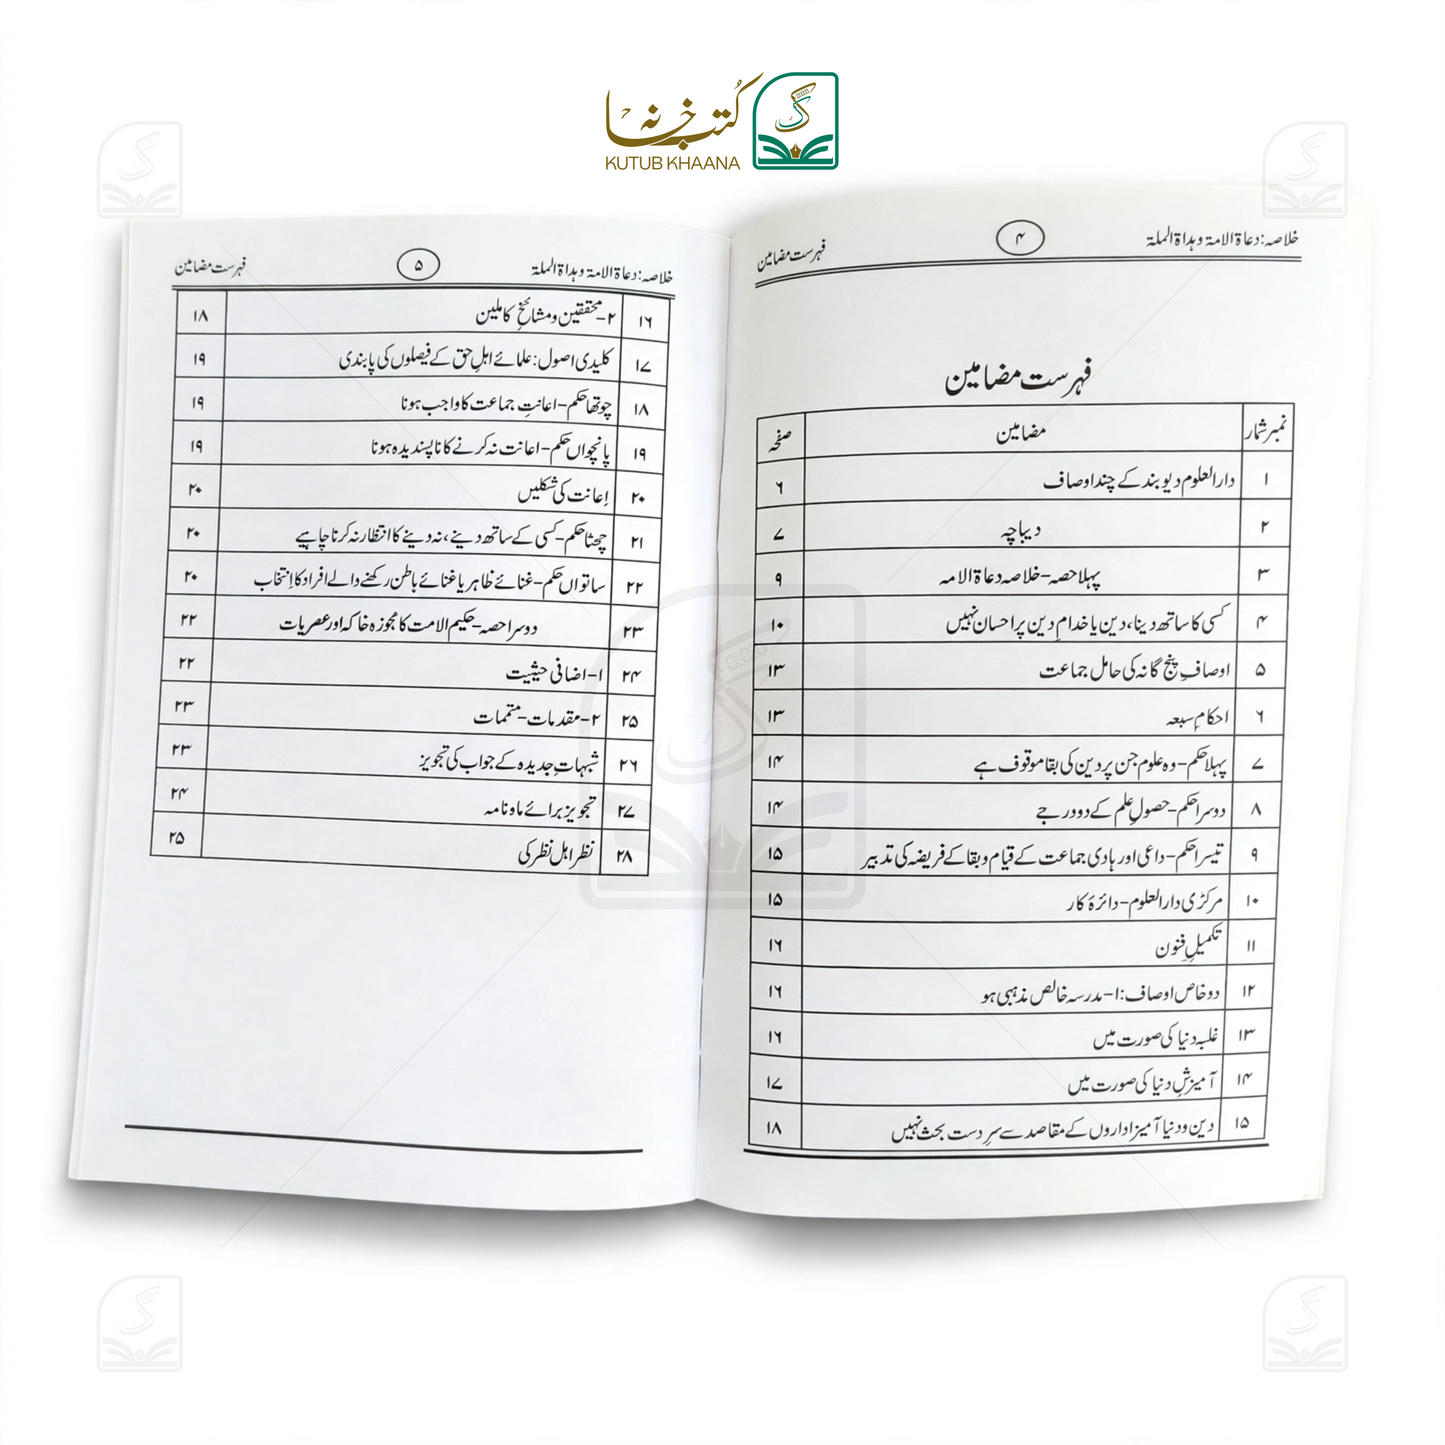 کُتب خانہ
KUTUB KHAANA
خلاصہ: دعاۃ الامۃ و ہداۃ الملۃ ۴ فہرست مضامین
فہرست مضامین
نمبر شمار مضامین صفحہ
۱ دارالعلوم دیوبند کے چند اوصاف ۶
۲ دیباچہ ۷
۳ پہلا حصہ- خلاصہ دعاۃ الامہ ۹
۴ کسی کا ساتھ دینا، دین یا خدامِ دین پر احسان نہیں ۱۰
۵ اوصافِ پنج گانہ کی حامل جماعت ۱۳
۶ احکامِ سبعہ ۱۳
۷ پہلا حکم- وہ علوم جن پر دین کی بقا موقوف ہے ۱۴
۸ دوسرا حکم- حصولِ علم کے دو درجے ۱۴
۹ تیسرا حکم- داعی اور ہادی جماعت کے قیام و بقا کے فریضہ کی تدبیر ۱۵
۱۰ مرکزی دارالعلوم- دائرۂ کار ۱۵
۱۱ تکمیلِ فنون ۱۶
۱۲ دو خاص اوصاف: ۱- مدرسہ خالص مذہبی ہو ۱۶
۱۳ غلبہ دنیا کی صورت میں ۱۶
۱۴ آمیزشِ دنیا کی صورت میں ۱۷
۱۵ دین و دنیا آمیز اداروں کے مقاصد سے سرِدست بحث نہیں ۱۸
خلاصہ: دعاۃ الامۃ و ہداۃ الملۃ ۵ فہرست مضامین
۱۶ ۲- محققین و مشائخِ کاملین ۱۸
۱۷ کلیدی اصول: علمائے اہلِ حق کے فیصلوں کی پابندی ۱۹
۱۸ چوتھا حکم- اعانتِ جماعت کا واجب ہونا ۱۹
۱۹ پانچواں حکم- اعانت نہ کرنے کا ناپسندیدہ ہونا ۱۹
۲۰ اِعانت کی شکلیں ۲۰
۲۱ چھٹا حکم- کسی کے ساتھ دینے، نہ دینے کا انتظار نہ کرنا چاہیے ۲۰
۲۲ ساتواں حکم- غنائے ظاہر یا غنائے باطن رکھنے والے افراد کا اِنتخاب ۲۰
۲۳ دوسرا حصہ- حکیم الامت کا مجوزہ خاکہ اور عصریات ۲۲
۲۴ ۱- اضافی حیثیت ۲۲
۲۵ ۲- مقدمات- متممات ۲۳
۲۶ شبہاتِ جدیدہ کے جواب کی تجویز ۲۳
۲۷ تجویز برائے ماہ نامہ ۲۴
۲۸ نظر اہل نظر کی ۲۵